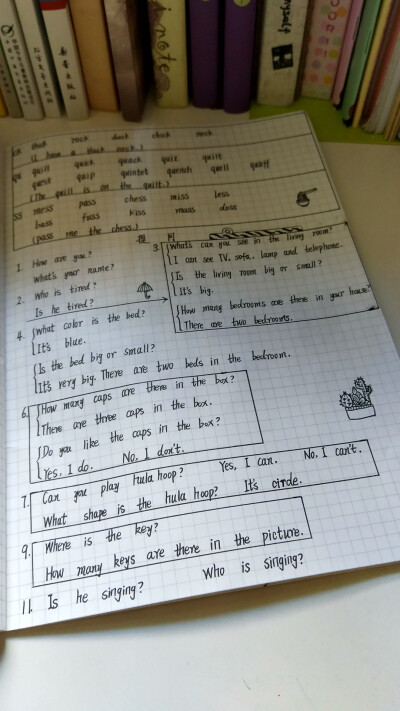 ck thick rock duck chick neck
(I have a thick neck.)
qu quill quick quack quiz quilt
quest quip quintet quench quell quaff
(The quill is on the quilt.)
ss mess pass chess miss less
bass fuss kiss mass doss
(pass me the chess.)
1. How are you?
What's your name?
2. Who is tired?
Is he tired?
3. What's can you see in the living room?
I can see TV, sofa, lamp and telephone.
Is the living room big or small?
It's big.
How many bedrooms are there in your house?
There are two bedrooms.
4. What color is the bed?
It's blue.
Is the bed big or small?
It's very big. There are two beds in the bedroom.
6. How many caps are there in the box?
There are three caps in the box.
Do you like the caps in the box?
Yes, I do. No, I don't.
7. Can you play hula hoop? Yes, I can. No, I can't.
What shape is the hula hoop? It's circle.
9. Where is the key?
How many keys are there in the picture.
11. Is he singing? Who is singing?
note
myself